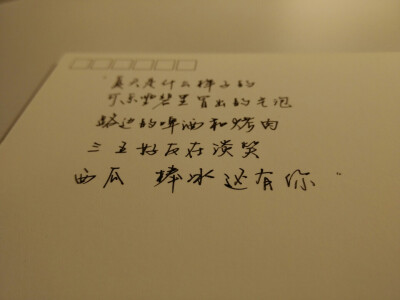 “夏天是什么样子的
可乐瓶里冒出的气泡
路边的啤酒和烤肉
三五好友在谈笑
西瓜 棒冰还有你”